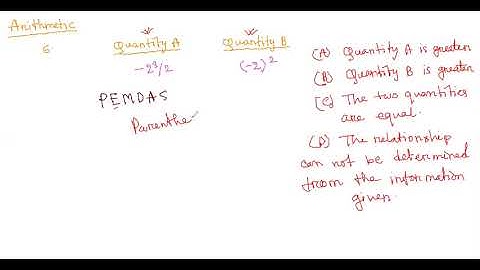 Arithmetic
6.
Quantity A
Quantity B
-2³/2
(-2)²
PEMDAS
Parenthe
(A) Quantity A is greater
(B) Quantity B is greater
(C) The two quantities
are equal.
(D) The relationship
can not be determined
from the information
given.